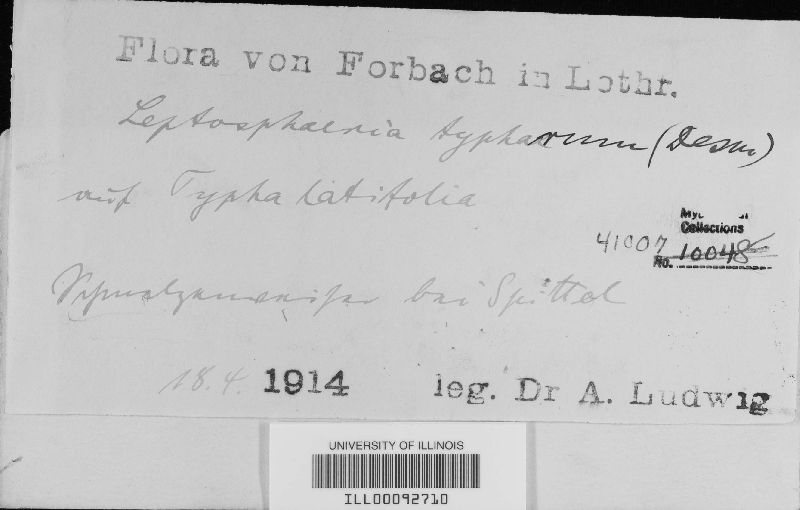 Flora von Forbach in Lothr.
Leptosphaeria typharum (Desm)
auf Typha latifolia
41007
Collections
No. 10048
bei Spittel
18.4. 1914 leg. Dr A. Ludwig
UNIVERSITY OF ILLINOIS
ILL00092710